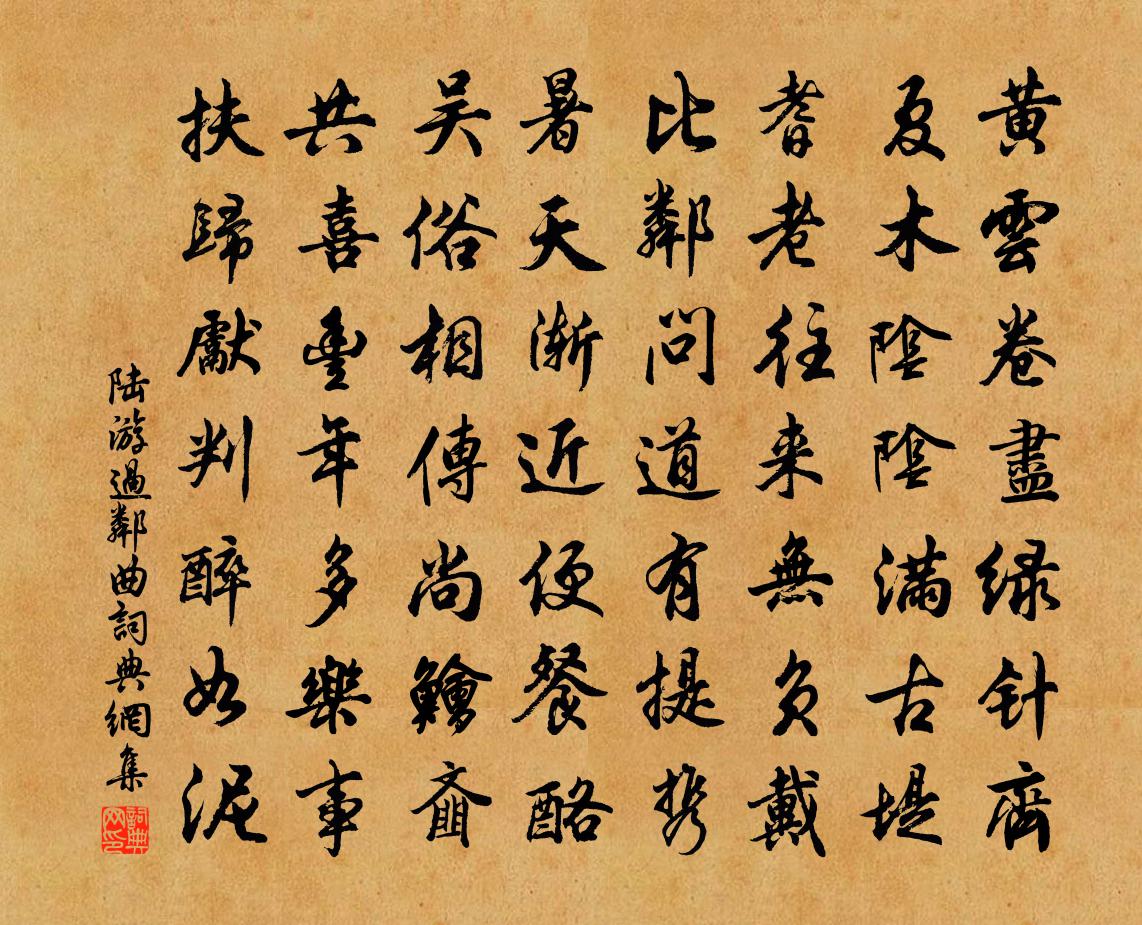 黄雲卷盡緑针齊
夏木陰陰滿古堤
耆老往来無負戴
比鄰問道有提携
暑天漸近便餐酪
吴俗相傳尚鱠齏
共喜豐年多樂事
扶歸獻判醉如泥
陆游過鄰曲詞典網集
詞典網印